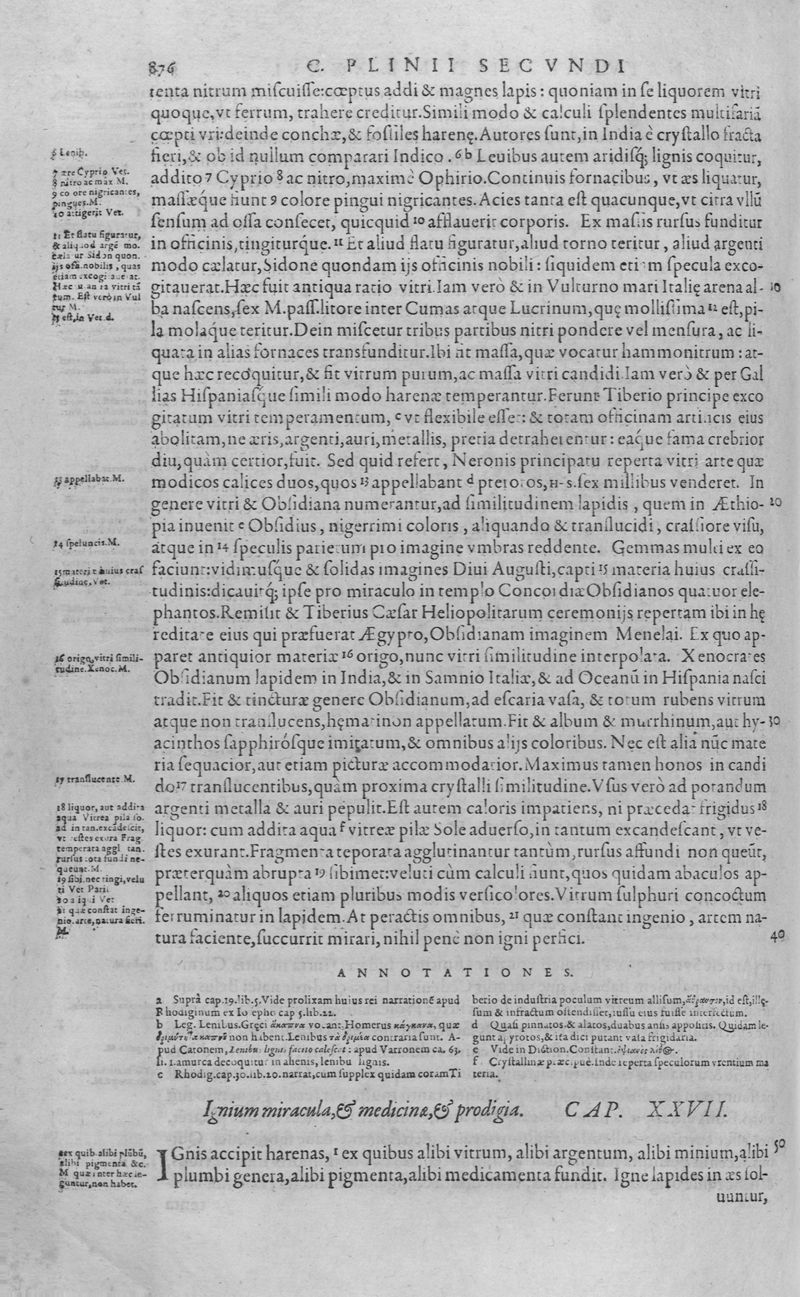 876 C. PLINII SECVNDI
tenta nitrum miſcuiſſe: cœptus addi & magnes lapis: quoniam in ſe liquorem vitri
quoque, vt ferrum, trahere creditur. Simili modo & calculi ſplendentes multifariā
cœpti vri: deinde conchæ, & foſſiles harenę. Autores ſunt, in India è cryſtallo fracta
fieri, & ob id nullum comparari Indico. 6 b Leuibus autem aridiſq; lignis coquitur,
addito 7 Cyprio 8 ac nitro, maximè Ophirio. Continuis fornacibus, vt æs liquatur,
maſſæque fiunt 9 colore pingui nigricantes. Acies tanta eſt quacunque, vt citra vllū
ſenſum ad oſſa conſecet, quicquid 10 afflauerit corporis. Ex maſſis rurſus funditur
in officinis, tingiturque. 11 Et aliud flatu figuratur, aliud torno teritur, aliud argenti
modo cælatur, Sidone quondam ijs officinis nobili: ſiquidem etiam ſpecula exco-
gitauerat. Hæc fuit antiqua ratio vitri. Iam verò & in Vulturno mari Italię arena al- 10
ba naſcens, ſex M. paſſ. litore inter Cumas atque Lucrinum, quę molliſſima 12 eſt, pi-
la molaque teritur. Dein miſcetur tribus partibus nitri pondere vel menſura, ac li-
quata in alias fornaces transfunditur. Ibi fit maſſa, quæ vocatur hammonitrum: at-
que hæc recoquitur, & fit vitrum purum, ac maſſa vitri candidi. Iam verò & per Gal
lias Hiſpaniaſque ſimili modo harenæ temperantur. Ferunt Tiberio principe exco
gitatum vitri temperamentum, c vt flexibile eſſet: & totam officinam artificis eius
abolitam, ne æris, argenti, auri, metallis, pretia detraherentur: eaque fama crebrior
diu, quàm certior, fuit. Sed quid refert, Neronis principatu reperta vitri arte quæ
modicos calices duos, quos 13 appellabant d pterotos, H-S. ſex millibus venderet. In
genere vitri & Obſidiana numerantur, ad ſimilitudinem lapidis, quem in Æthio- 20
pia inuenit e Obſidius, nigerrimi coloris, aliquando & tranſlucidi, craſſiore viſu,
atque in 14 ſpeculis parietum pro imagine vmbras reddente. Gemmas multi ex eo
faciunt: vidimuſque & ſolidas imagines Diui Auguſti, capti 15 materia huius craſſi-
tudinis: dicauitq; ipſe pro miraculo in templo Concordiæ Obſidianos quatuor ele-
phantos. Remiſit & Tiberius Cæſar Heliopolitarum ceremonijs repertam ibi in hę
reditate eius qui præfuerat Ægypto, Obſidianam imaginem Menelai. Ex quo ap-
paret antiquior materiæ 16 origo, nunc vitri ſimilitudine interpolata. Xenocrates
Obſidianum lapidem in India, & in Samnio Italiæ, & ad Oceanū in Hiſpania naſci
tradit. Fit & tincturæ genere Obſidianum, ad eſcaria vaſa, & totum rubens vitrum
atque non tranſlucens, hęmatinon appellatum. Fit & album & murrhinum, aut hy- 30
acinthos ſapphiróſque imitatum, & omnibus alijs coloribus. Nec eſt alia nūc mate
ria ſequacior, aut etiam picturæ accommodatior. Maximus tamen honos in candi
do 17 tranſlucentibus, quàm proxima cryſtalli ſimilitudine. Vſus verò ad potandum
argenti metalla & auri pepulit. Eſt autem caloris impatiens, ni præcedat frigidus 18
liquor: cum addita aqua f vitreæ pilæ Sole aduerſo, in tantum excandeſcant, vt ve-
ſtes exurant. Fragmenta teporata agglutinantur tantùm, rurſus affundi non queūt,
præterquàm abrupta 19 ſibimet: veluti cùm calculi fiunt, quos quidam abaculos ap-
pellant, 20 aliquos etiam pluribus modis verſicolores. Vitrum ſulphuri concoctum
ferruminatur in lapidem. At peractis omnibus, 21 quæ conſtant ingenio, artem na-
tura faciente, ſuccurrit mirari, nihil penè non igni perfici. 40
6 Lenib.
7 ære Cyprio Vet.
8 nitro ac max M.
9 colore nigricantes,
pingues. M.
10 attigerit Vet.
11 Et flatu figuratur,
& aliquod argē mo.
cælatur Sidon quon.
ijs offi. nobilis, quas
etiam excogi
tum. Eſt verò in Vul
tur M.
12 eſt, in Vet. d.
13 appellabat. M.
14 ſpeluncis. M.
15 materię huius craſ
ſitudine, Vet.
16 origo, vitri ſimili-
tudine. Xenoc. M.
17 tranſlucente M.
18 liquor, aut addita
aqua Vitrea pila ſo.
ad in tan. excādeſcit,
vt veſtes exura Frag.
temperata aggl. tan.
rurſus tota fundi ne-
queunt. M.
19 ſibi. nec tingi, velu
ti Vet Pariſ.
20 aliqui Vet
21 quæ conſtat inge-
nio. arte, natura facti.
M.
ANNOTATIONES.
a Suprà cap. 19. lib. 5. Vide prolixam huius rei narrationē apud
Rhodiginum ex Ioſepho cap 5. lib. 22.
b Leg. Lenibus. Gręci ἄκαπνα vocant. Homerus κάγκανα, quæ
non habent. Lenibus τὰ contraria ſunt. A-
pud Catonem, Lenibus lignis facito caleſcat: apud Varronem ca. 63.
ſi. 1. amurca decoquitur in ahenis, lenibus lignis.
c Rhodig. cap. 30. lib. 20. narrat, cum ſupplex quidam coram Ti
berio de induſtria poculum vitreum alliſum, id eſt, illę-
ſum & infractum oſtendiſſet, iuſſu eius fuiſſe interfectum.
d Quaſi pinnatos. & alatos, duabus anſis appoſitis. Quidam le-
gunt apyrotos, & ita dici putant vaſa frigidaria.
e Vide in Diction. Conſtant.
f Cryſtallinæ præcipuè. Inde reperta ſpeculorum vrentium ma
teria.
Ignium miracula, & medicinæ, & prodigia. CAP. XXVII.
1 ex quib. alibi plūbū,
alibi pigmenta &c.
M quæ inter hæc le-
guntur, non habet.
IGnis accipit harenas, 1 ex quibus alibi vitrum, alibi argentum, alibi minium, alibi 50
plumbi genera, alibi pigmenta, alibi medicamenta fundit. Igne lapides in æs ſol-
uuntur,